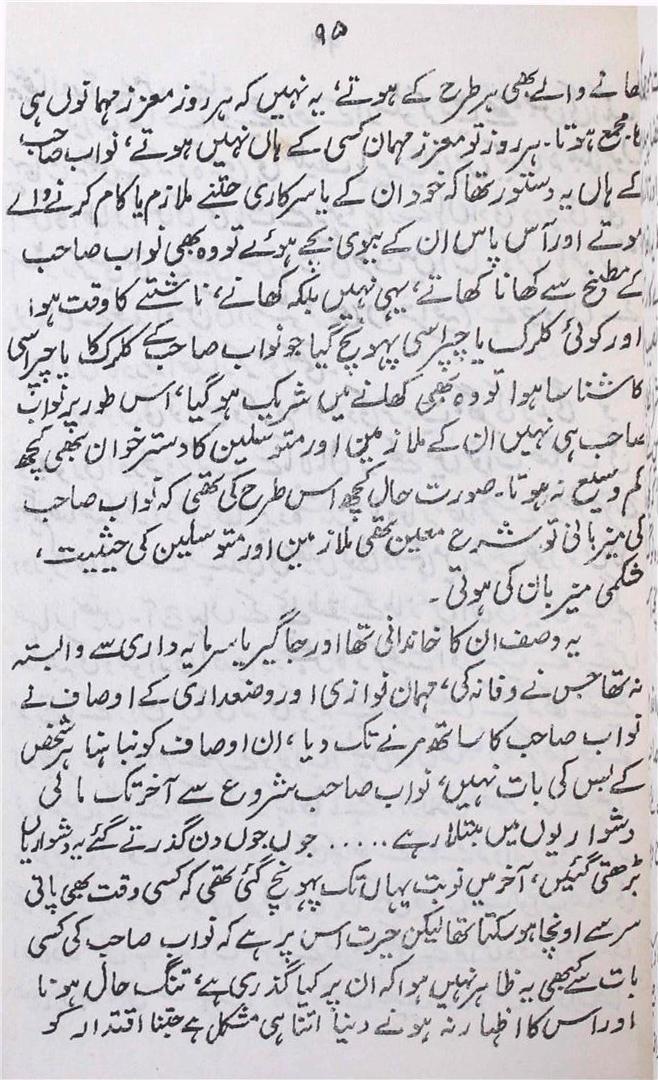 ۹۵
کھانے والے بھی ہر طرح کے ہوتے، یہ نہیں کہ ہر روز معزز مہمانوں ہی
کا مجمع ہوتا۔ ہر روز تو معزز مہمان کسی کے ہاں نہیں ہوتے، نواب صاحب
کے ہاں یہ دستور تھا کہ خود ان کے یا سرکاری جتنے ملازم یا کام کرنے والے
ہوتے اور آس پاس ان کے بیوی بچے ہوئے تو وہ بھی نواب صاحب
کے مطبخ سے کھانا کھاتے، یہی نہیں بلکہ کھانے، ناشتے کا وقت ہوا
اور کوئی کلرک یا چپراسی پہونچ گیا جو نواب صاحب کے کلرک کا یا چپراسی
کا شناسا ہوا تو وہ بھی کھلنے میں شریک ہو گیا، اس طور پر نواب
صاحب ہی نہیں ان کے ملازمین اور متوسلین کا دسترخوان بھی کچھ
کم وسیع نہ ہوتا۔ صورت حال کچھ اس طرح کی تھی کہ نواب صاحب
کی میزبانی تو شرع معین تھی ملازمین اور متوسلین کی حیثیت،
شکمی میزبان کی ہوتی۔
یہ وصف ان کا خاندانی تھا اور جاگیر یا سرمایہ داری سے وابستہ
نہ تھا جس نے وفا نہ کی، مہمان نوازی اور وضعداری کے اوصاف نے
نواب صاحب کا ساتھ مرنے تک دیا، ان اوصاف کو نباہنا ہر شخص
کے بس کی بات نہیں، نواب صاحب شروع سے آخر تک مالی
دشواریوں میں مبتلا رہے ..... جوں جوں دن گذرتے گئے یہ دشواریاں
بڑھتی گئیں، آخر میں نوبت یہاں تک پہونچ گئی تھی کہ کسی وقت بھی پانی
سر سے اونچا ہو سکتا تھا لیکن حیرت اس پر ہے کہ نواب صاحب کی کسی
بات سے کبھی یہ ظاہر نہیں ہوا کہ ان پر کیا گذری ہے، تنگ حال ہونا
اور اس کا اظہار نہ ہونے دینا اتنا ہی مشکل ہے جتنا اقتدار کو